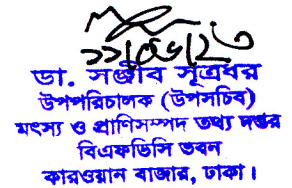 ১১/০৬/২৩
ডা. সঞ্জীব সূত্রধর
উপপরিচালক (উপসচিব)
মৎস্য ও প্রাণিসম্পদ তথ্য দপ্তর
বিএফডিসি ভবন
কারওয়ান বাজার, ঢাকা।